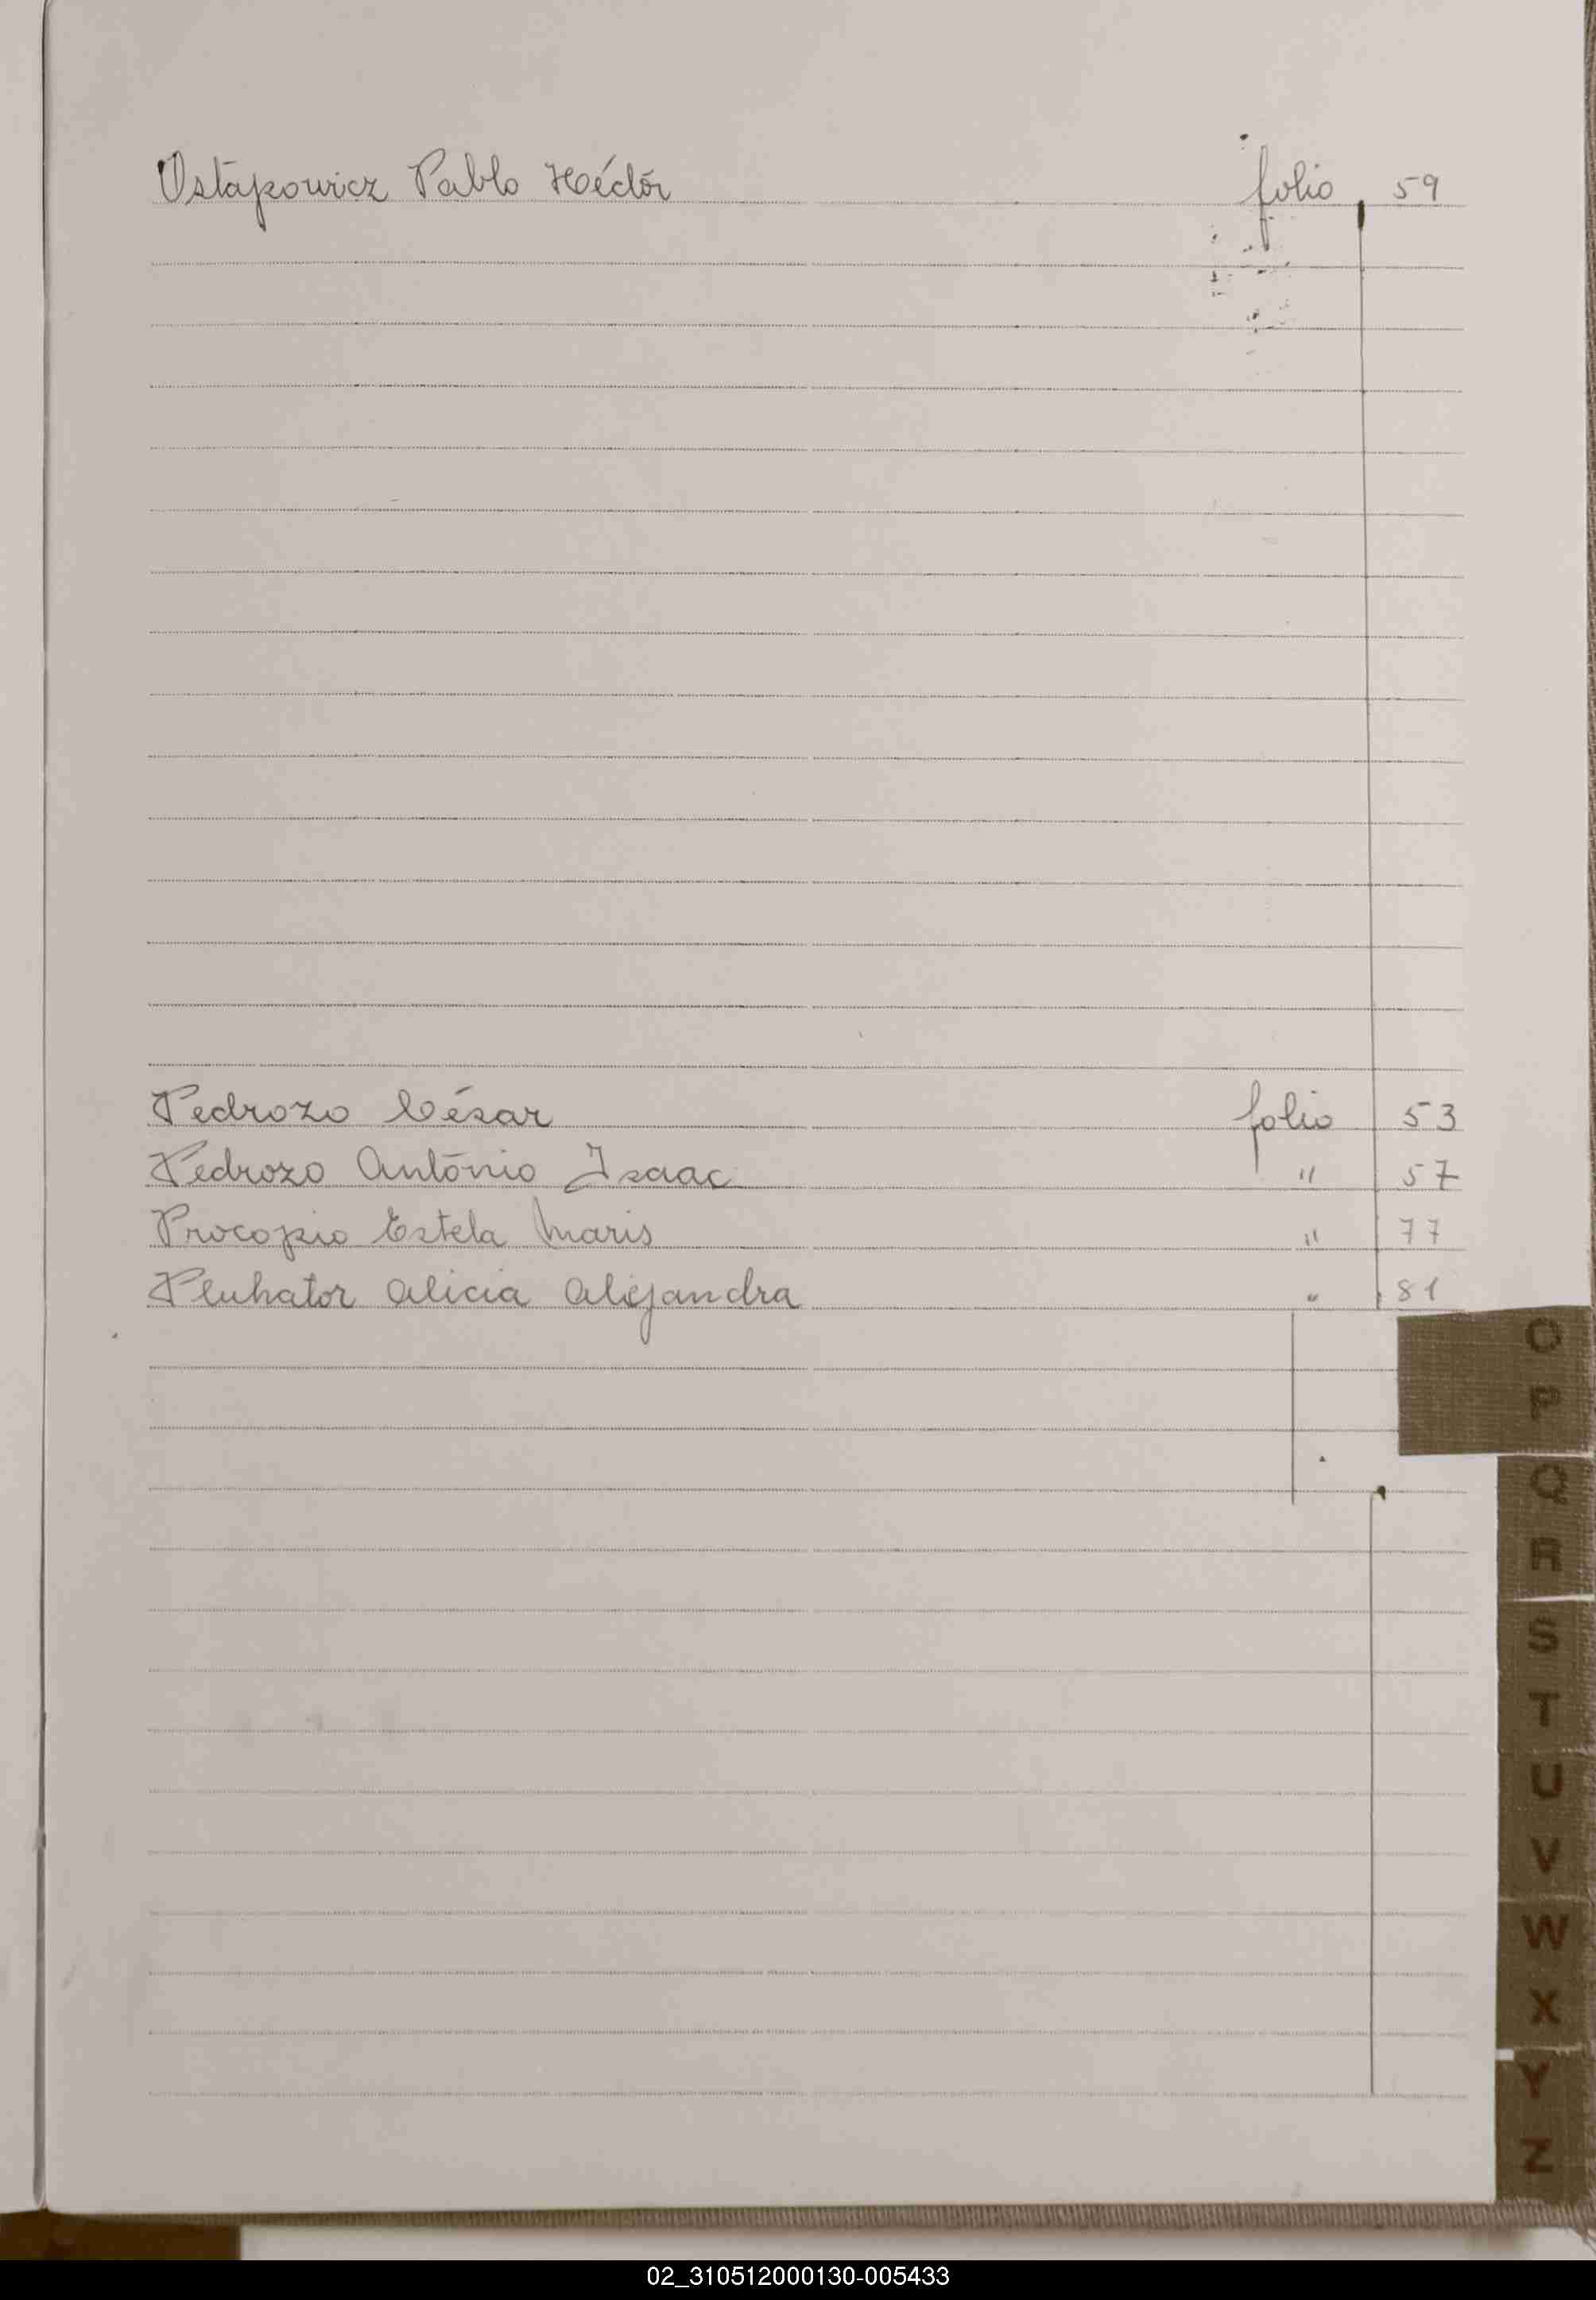 Ostapowicz Pablo Héctór folio 59
Pedrozo César folio 53
Pedrozo António Isaac " 57
Procopio Estela Maris " 77
Pluhator Alicia Alejandra " 81
O
P
Q
R
S
T
U
V
W
X
Y
Z
02_310512000130-005433